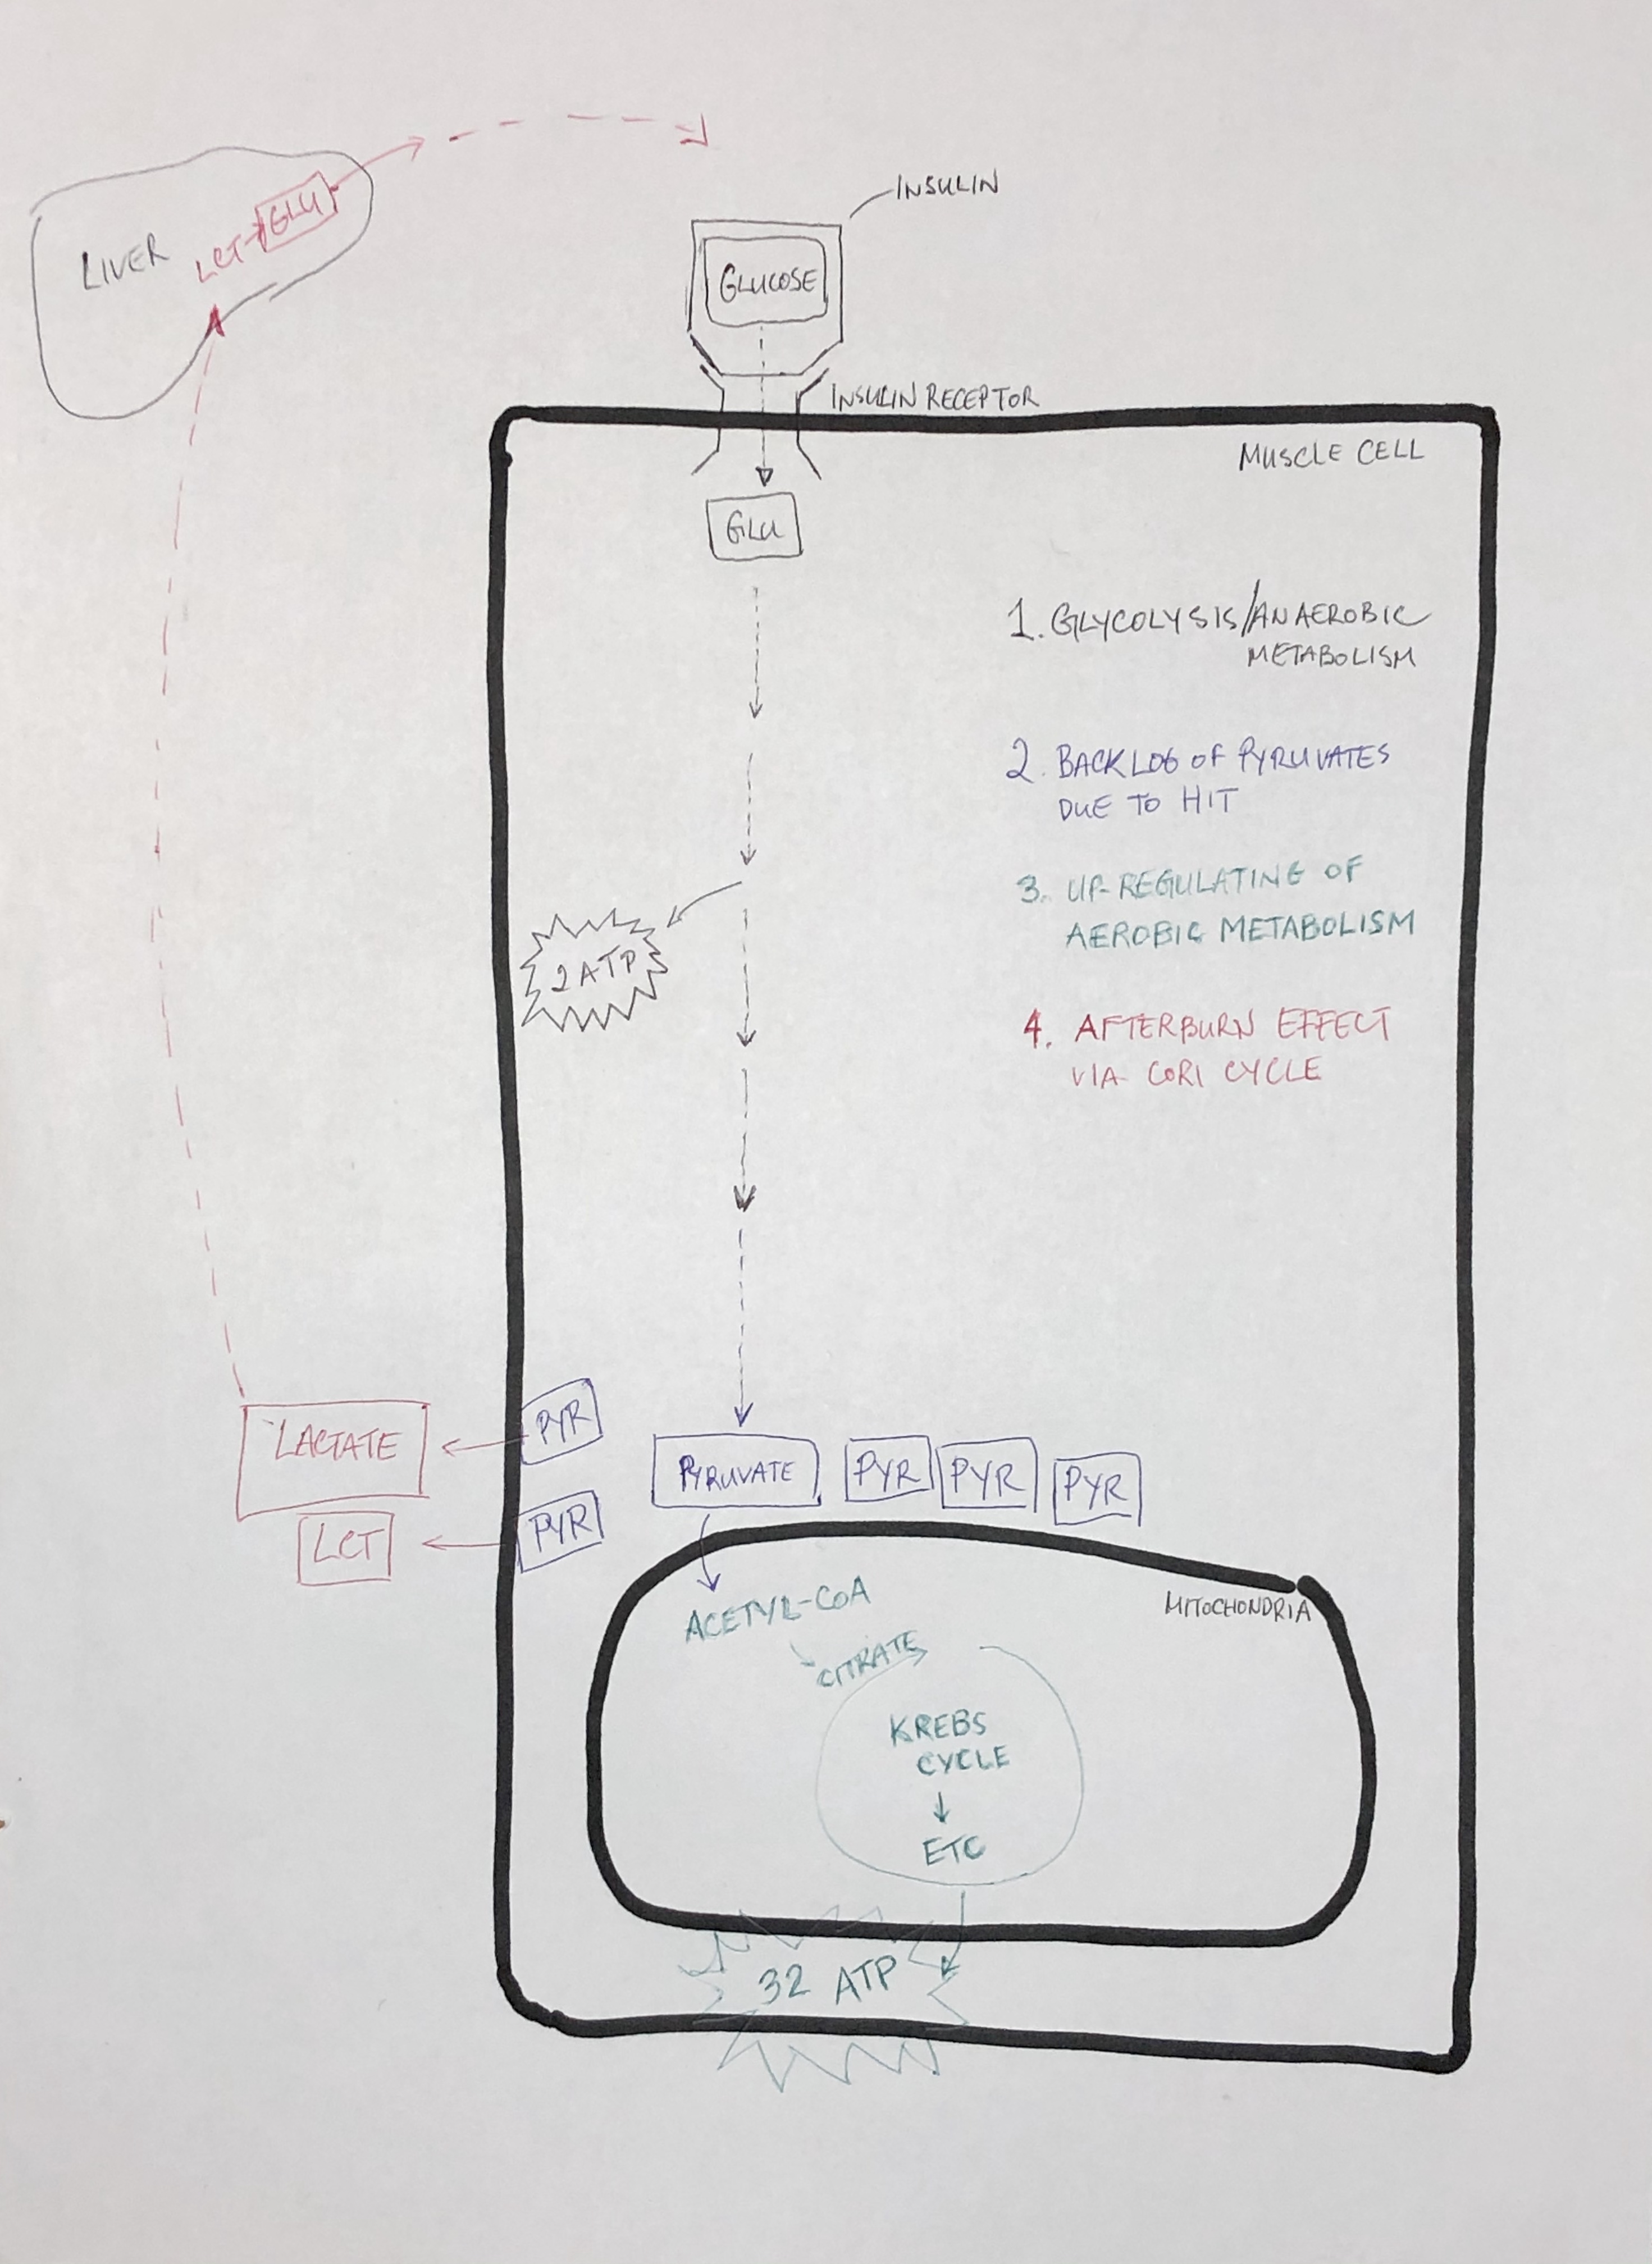 INSULIN
LIVER
LCT
GLU
GLUCOSE
INSULIN RECEPTOR
MUSCLE CELL
GLU
1. GLYCOLYSIS/ANAEROBIC
METABOLISM
2. BACKLOG OF PYRUVATES
DUE TO HIT
3. UP-REGULATING OF
AEROBIC METABOLISM
2 ATP
4. AFTERBURN EFFECT
VIA CORI CYCLE
LACTATE
PYR
PYRUVATE
PYR
PYR
PYR
LCT
PYR
ACETYL-COA
MITOCHONDRIA
CITRATE
KREBS
CYCLE
ETC
32 ATP